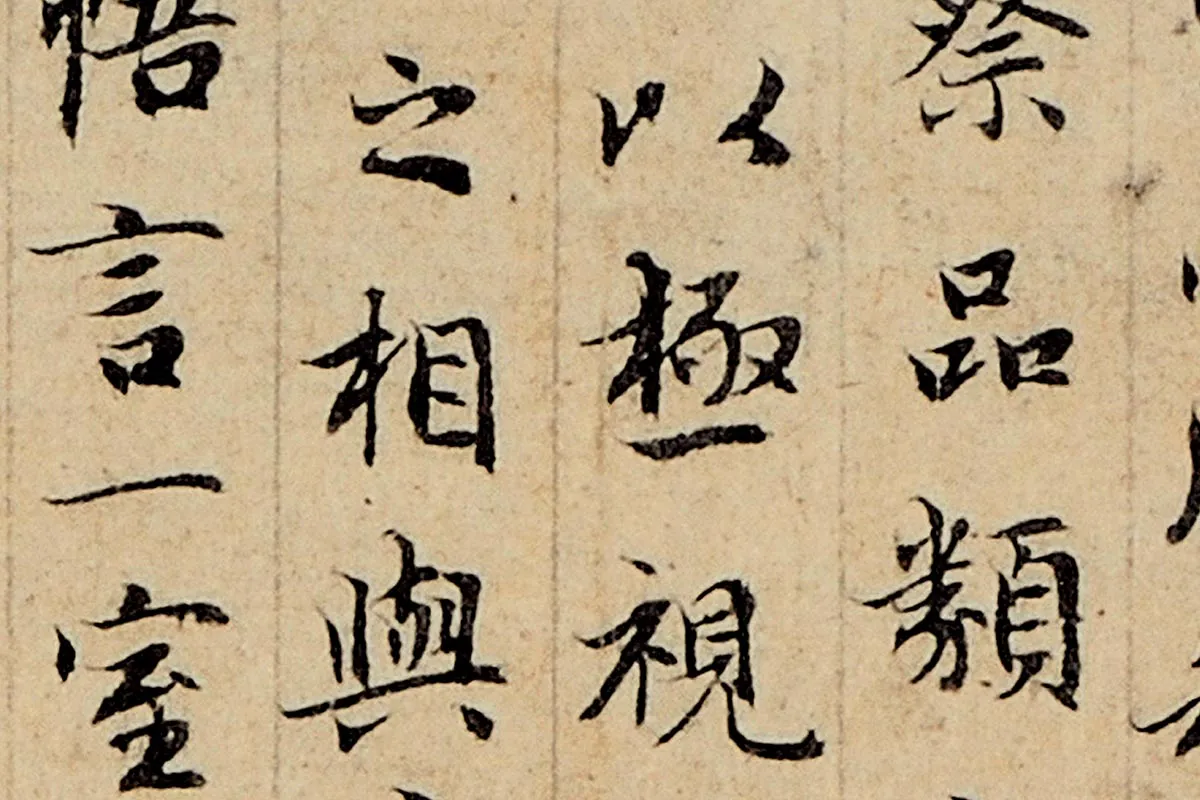 察品類
以極視
之相與
悟言一室